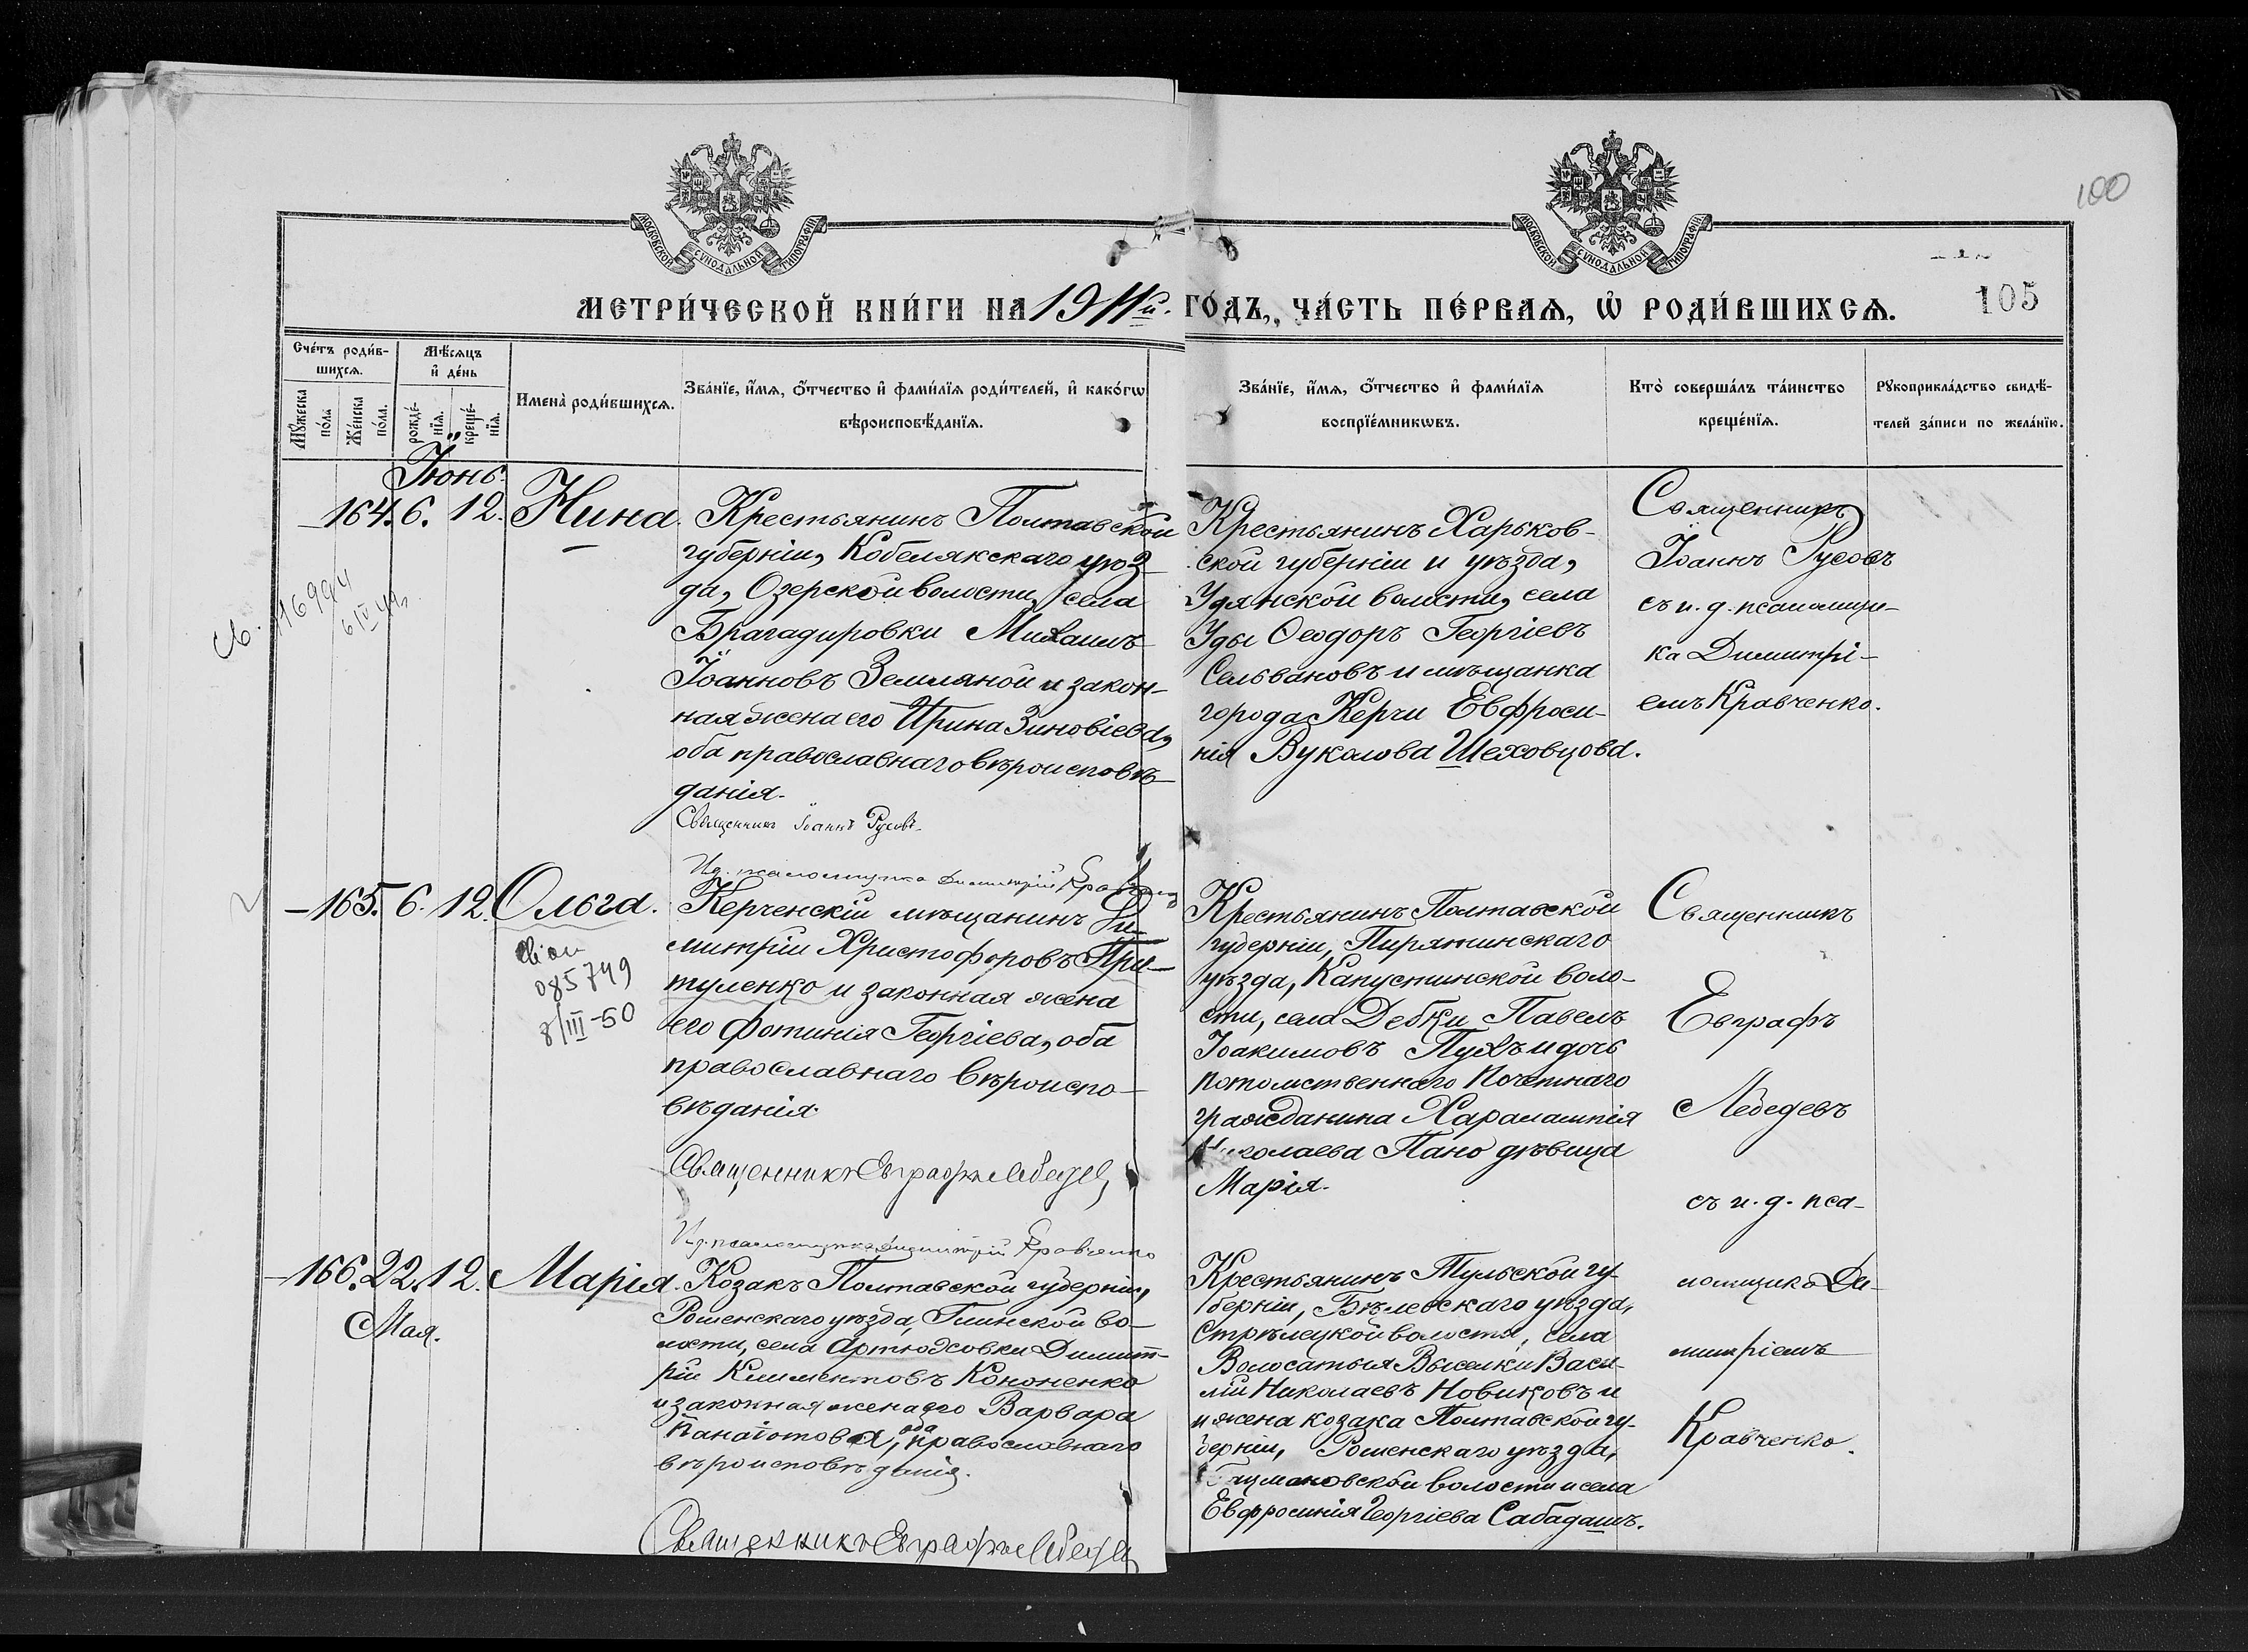 100
МОСКОВСКОЙ СѴНОДАЛЬНОЙ ТИПОГРАФІИ
МОСКОВСКОЙ СѴНОДАЛЬНОЙ ТИПОГРАФІИ
МЕТРИ́ЧЕСКОЙ КНИ́ГИ НА 1911й. ГО́ДЪ, ЧА́СТЬ ПЕ́РВАѦ, Ѡ҆ РОДИ́ВШИХСѦ. 105
Сче́тъ роди́в-
шихсѧ.
Мꙋ́жеска
по́ла
Же́нска
по́ла.
Мѣ́сѧцъ
и҆ де́нь
рожде́-
нїѧ.
креще́-
нїѧ.
Имена̀ роди́вшихсѧ.
Зва́нїе, и҆́мѧ, ѻ҆́тчество и҆ фами́лїѧ роди́телей, и҆ како́гѡ
вѣроисповѣ́данїѧ.
Зва́нїе, и҆́мѧ, ѻ҆́тчество и҆ фами́лїѧ
воспрїе́мникѡвъ.
Кто̀ соверша́лъ та́инство
креще́нїѧ.
Рꙋкоприкла́дство свидѣ́-
телей за́писи по жела́нїю.
Іюнь.
164. 6. 12. Нина.
св. 116994
6 IV 41г.
Крестьянинъ Полтавской
губерніи, Кобелякскаго уѣз-
да, Озерской волости, села
Брагадировки Михаилъ
Іоанновъ Земляной и закон-
ная жена его Ирина Зиновіева,
оба православнаго вѣроисповѣ-
данія.
Священникъ Іоаннъ Русовъ.
И.д. псаломщика Димитрій Кравченко
Крестьянинъ Харьков-
ской губерніи и уѣзда,
Удянской волости, села
Уды Ѳеодоръ Георгіевъ
Сельвановъ и мѣщанка
города Керчи Евфроси-
нія Вуколова Шеховцова.
Священникъ
Іоаннъ Русовъ
съ и. д. псаломщи-
ка Димитрі-
емъ Кравченко.
165. 6. 12. Ольга.
085749
8/III-50
Керченскій мѣщанинъ Ди-
митрій Христофоровъ При-
туленко и законная жена
его Фотинія Георгіева, оба
православнаго вѣроиспо-
вѣданія.
Священникъ Евграфъ Лебедев
И.д. псаломщика Димитрій Кравченко
Крестьянинъ Полтавской
губерніи, Пирятинскаго
уѣзда, Капустинской воло-
сти, села Дебки Павелъ
Іоакимовъ Пухъ и дочь
потомственнаго почетнаго
гражданина Харалампія
Николаева Пано дѣвица
Марія.
Священникъ
Евграфъ
Лебедевъ
съ и. д. пса-
ломщика Ди-
митріемъ
Кравченко.
166. 22. 12. Марія.
Мая.
Козакъ Полтавской губерніи,
Роменскаго уѣзда, Глинской во-
лости, села Артюховки Димит-
рій Климентовъ Кононенко
и законная жена его Варвара
Панаіотова, оба православнаго
вѣроисповѣданія.
Священникъ Евграфъ Лебедев
Крестьянинъ Тульской гу-
берніи, Бѣлевскаго уѣзда,
Стрѣлецкой волости, села
Волосатыя Выселки Васи-
лій Николаевъ Новиковъ и
и жена козака Полтавской гу-
берніи, Роменскаго уѣзда,
волости и села
Евфросинія Георгіева Сабадашъ.